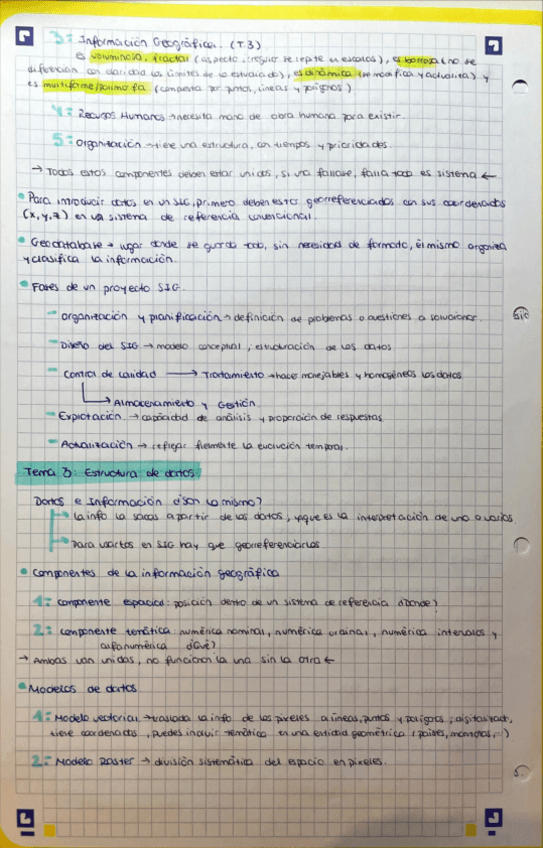 3: Información Geográfica. (T.3)
es voluminosa, fractal (aspecto irregular se repite en escalas), es borrosa (no se
diferencian con claridad los límites de lo estudiado), es dinámica (se modifica y actualiza) y
es multiforme/polimorfa (compuesta por puntos, líneas y polígonos)
4: Recursos Humanos → necesita mano de obra humana para existir.
5: Organización → tiene una estructura, con tiempos y prioridades.
→ Todos estos componentes deben estar unidos, si una fallase, falla todo es sistema ←
• Para introducir datos en un SIG, primero deben estar georreferenciados con sus coordenadas
(x,y,z) en un sistema de referencia convencional.
• Geodatabase → lugar donde se guarda todo, sin necesidad de formato, él mismo organiza
y clasifica la información.
• Fases de un proyecto SIG.
- Organización y planificación → definición de problemas o cuestiones a solucionar.
- Diseño del SIG → modelo conceptual, estructuración de los datos
- Control de calidad → Tratamiento → hacer manejables y homogéneos los datos
→ Almacenamiento y Gestión.
- Explotación → capacidad de análisis y proporción de respuestas
- Actualización → reflejar fielmente la evolución temporal.
Tema 3: Estructura de datos.
Datos e Información ¿son lo mismo?
→ la info la sacas a partir de los datos, ya que es la interpretación de uno o varios
→ Para usarlos en SIG hay que georreferenciarlos
• Componentes de la información geográfica
1: Componente espacial: posición dentro de un sistema de referencia ¿Dónde?
2: Componente temática: numérica nominal, numérica ordinal, numérica intervalos y
alfanumérica ¿Qué?
→ Ambas van unidas, no funciona la una sin la otra ←
• Modelos de datos
1: Modelo vectorial → traslada la info de los píxeles a líneas, puntos y polígonos,
tiene coordenadas, puedes incluir temática en una entidad geométrica (países,
2: Modelo Raster → división sistemática del espacio en píxeles.